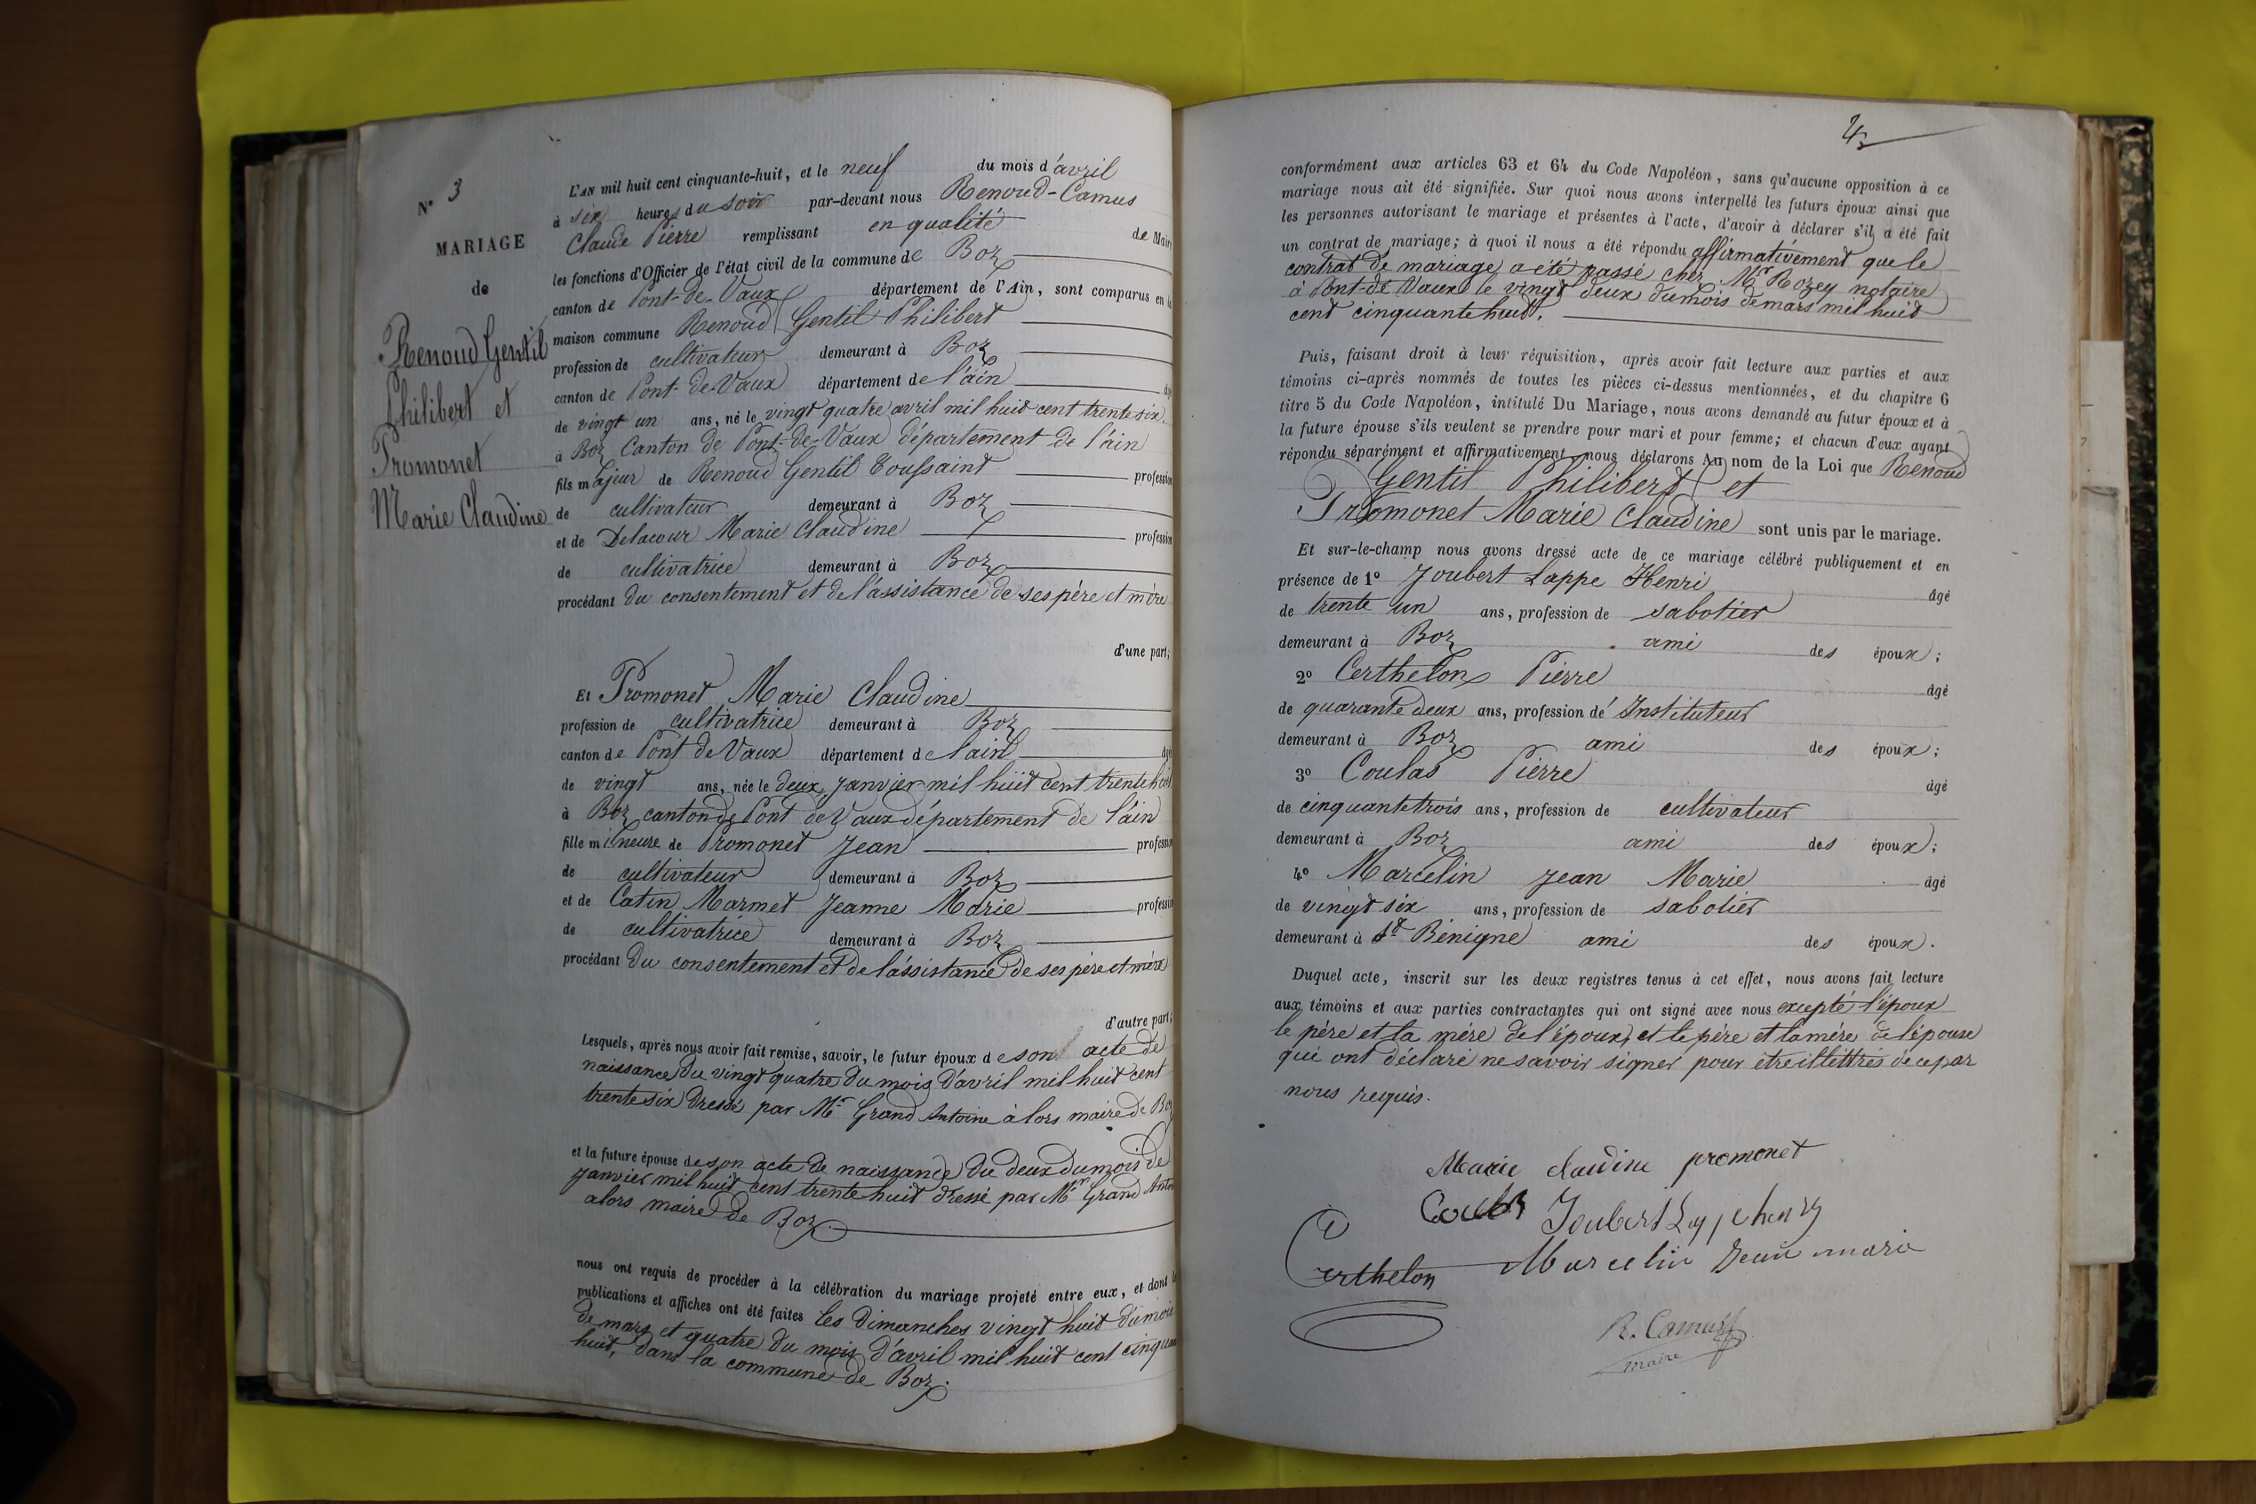 N° 3
MARIAGE
de
Renoud Gentil
Philibert et
Promonet
Marie Claudine
L'AN mil huit cent cinquante-huit, et le neuf du mois d'avril
à six heures du soir par-devant nous Renoud-Camus
Claude Pierre remplissant en qualité de Maire
les fonctions d'Officier de l'état civil de la commune de Boz
canton de Pont-de-Vaux département de l'Ain, sont comparus en la
maison commune Renoud Gentil Philibert
profession de cultivateur demeurant à Boz
canton de Pont-de-Vaux département de l'ain âgé
de vingt un ans, né le vingt quatre avril mil huit cent trente six
à Boz Canton de Pont-de-Vaux département de l'ain
fils majeur de Renoud Gentil Toussaint profession
de cultivateur demeurant à Boz
et de Delacour Marie Claudine profession
de cultivatrice demeurant à Boz
procédant du consentement et de l'assistance de ses père et mère
d'une part;
Et Promonet Marie Claudine
profession de cultivatrice demeurant à Boz
canton de Pont de Vaux département de l'ain âgée
de vingt ans, née le deux janvier mil huit cent trente huit
à Boz canton de Pont de Vaux département de l'ain
fille mineure de Promonet Jean profession
de cultivateur demeurant à Boz
et de Catin Marmet Jeanne Marie profession
de cultivatrice demeurant à Boz
procédant du consentement et de l'assistance de ses père et mère
d'autre part;
Lesquels, après nous avoir fait remise, savoir, le futur époux de son acte de
naissance du vingt quatre du mois d'avril mil huit cent
trente six dressé par Mr Grand Antoine alors maire de Boz
et la future épouse de son acte de naissance du deux du mois de
janvier mil huit cent trente huit dressé par Mr Grand Antoi
alors maire de Boz
nous ont requis de procéder à la célébration du mariage projeté entre eux, et dont les
publications et affiches ont été faites les dimanches vingt huit du mois
de mars et quatre du mois d'avril mil huit cent cinquante
huit, dans la commune de Boz.
conformément aux articles 63 et 64 du Code Napoléon, sans qu'aucune opposition à ce
mariage nous ait été signifiée. Sur quoi nous avons interpellé les futurs époux ainsi que
les personnes autorisant le mariage et présentes à l'acte, d'avoir à déclarer s'il a été fait
un contrat de mariage; à quoi il nous a été répondu affirmativement que le
contrat de mariage a été passé chez Mr Rozey notaire
à Pont-de Vaux le vingt deux du mois de mars mil huit
cent cinquante huit.
Puis, faisant droit à leur réquisition, après avoir fait lecture aux parties et aux
témoins ci-après nommés de toutes les pièces ci-dessus mentionnées, et du chapitre 6
titre 5 du Code Napoléon, intitulé Du Mariage, nous avons demandé au futur époux et à
la future épouse s'ils veulent se prendre pour mari et pour femme; et chacun d'eux ayant
répondu séparément et affirmativement, nous déclarons Au nom de la Loi que Renoud
Gentil Philibert et
Promonet Marie Claudine sont unis par le mariage.
Et sur-le-champ nous avons dressé acte de ce mariage célébré publiquement et en
présence de 1° Joubert Lappe Henri âgé
de trente un ans, profession de sabotier
demeurant à Boz ami des époux;
2° Certhelon Pierre âgé
de quarante deux ans, profession de Instituteur
demeurant à Boz ami des époux;
3° Coulas Pierre âgé
de cinquante trois ans, profession de cultivateur
demeurant à Boz ami des époux;
4° Marcelin Jean Marie âgé
de vingt six ans, profession de sabotier
demeurant à St Bénigne ami des époux.
Duquel acte, inscrit sur les deux registres tenus à cet effet, nous avons fait lecture
aux témoins et aux parties contractantes qui ont signé avec nous excepté l'époux
le père et la mère de l'époux, et le père et la mère de l'épouse
qui ont déclaré ne savoir signer pour être illettrés de ce par
nous requis.
Marie claudine promonet
Joubert
Certhelon Marcelin Jean marie
R. Camus
maire